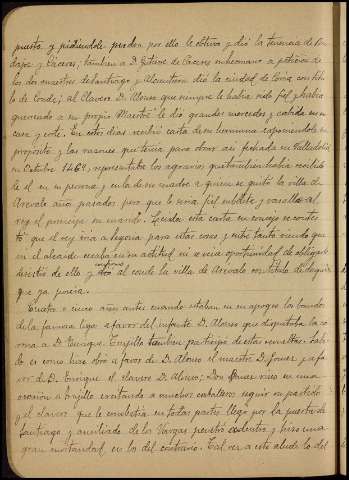 puesto y pidiendole perdon por ello le estuvo y dió la tenencia de
y Cáceres; tambien a D. Gutierre de Cáceres su hermano a peticion de
los dos maestres de Santiago y Alcantara dió la ciudad de Coria con titu
lo de Conde; al Clavero D. Alonso que siempre le habia sido fiel y habia
quemado a su propio Maestre le dió grandes mercedes y cabida en su
casa y corte. En estos dias recibió carta de su hermana esponiendole su
proposito y las razones que tenia para obrar asi fechada en Valladolid
en Octubre 1468, representaba los agravios que tambien habia recibido
le él en su persona y en la de su madre a quien se quitó la villa de
Arevalo años pasados pero que le seria fiel subdita y vasalla al
rey el principe su marido. Leida esta carta en consejo se contes
tó que el rey iria a Segovia para estas cosas, y entre tanto viendo que
ni el alcaide cedia en su actitud ni se veia oportunidad de obligarle
desistio de ello y dió al conde la villa de Arevalo con titulo de duque
que ya poseia.
Cuatro o cinco años antes cuando estaban en su apogeo los bandos
de la famosa liga a favor del infante D. Alonso que disputaba la co
rona a D. Enrique. Trujillo tambien participó de estas revueltas: ha
lo es como hizo obró a favor de D. Alonso el maestre D. Gomez y a fa
vor de D. Enrique el clavero D. Alonso; Don Gomez vino en una
ocasion a Trujillo excitando a muchos caballeros seguir su partido
y el clavero que le combatia en todas partes llegó por la puerta de
Santiago y auxiliado de los Vargas penetró adentro y hizo una
gran mortandad en los del contrario. Tal vez a este alude lo del